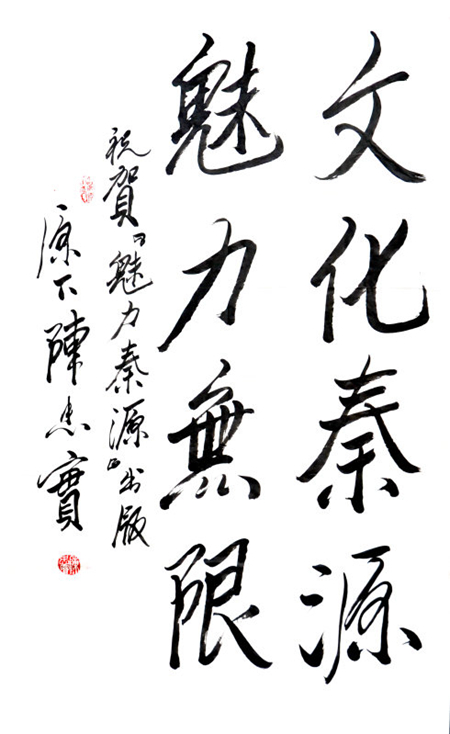 文化秦源
魅力無限
祝賀『魅力秦源』出版
原下陳忠實